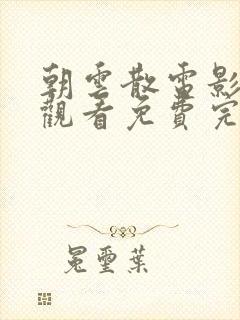 朝雲散電影
觀看免費完
冕璽葉